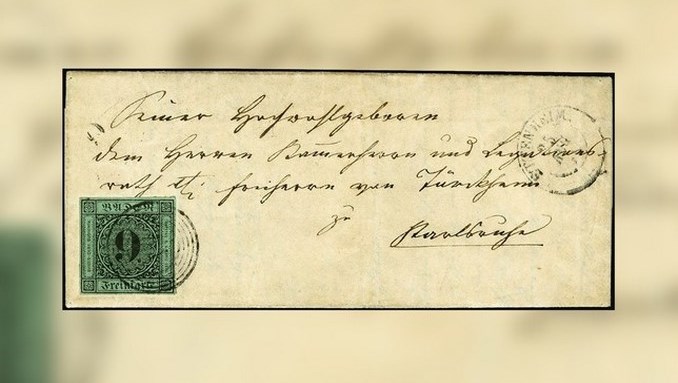 Seiner Hochwohlgeboren
dem Herren Kammerherrn und Legations-
rath freiherrn von Türckheim
zu
Karlsruhe
ETTENHEIM
BADEN
9
Freimarke